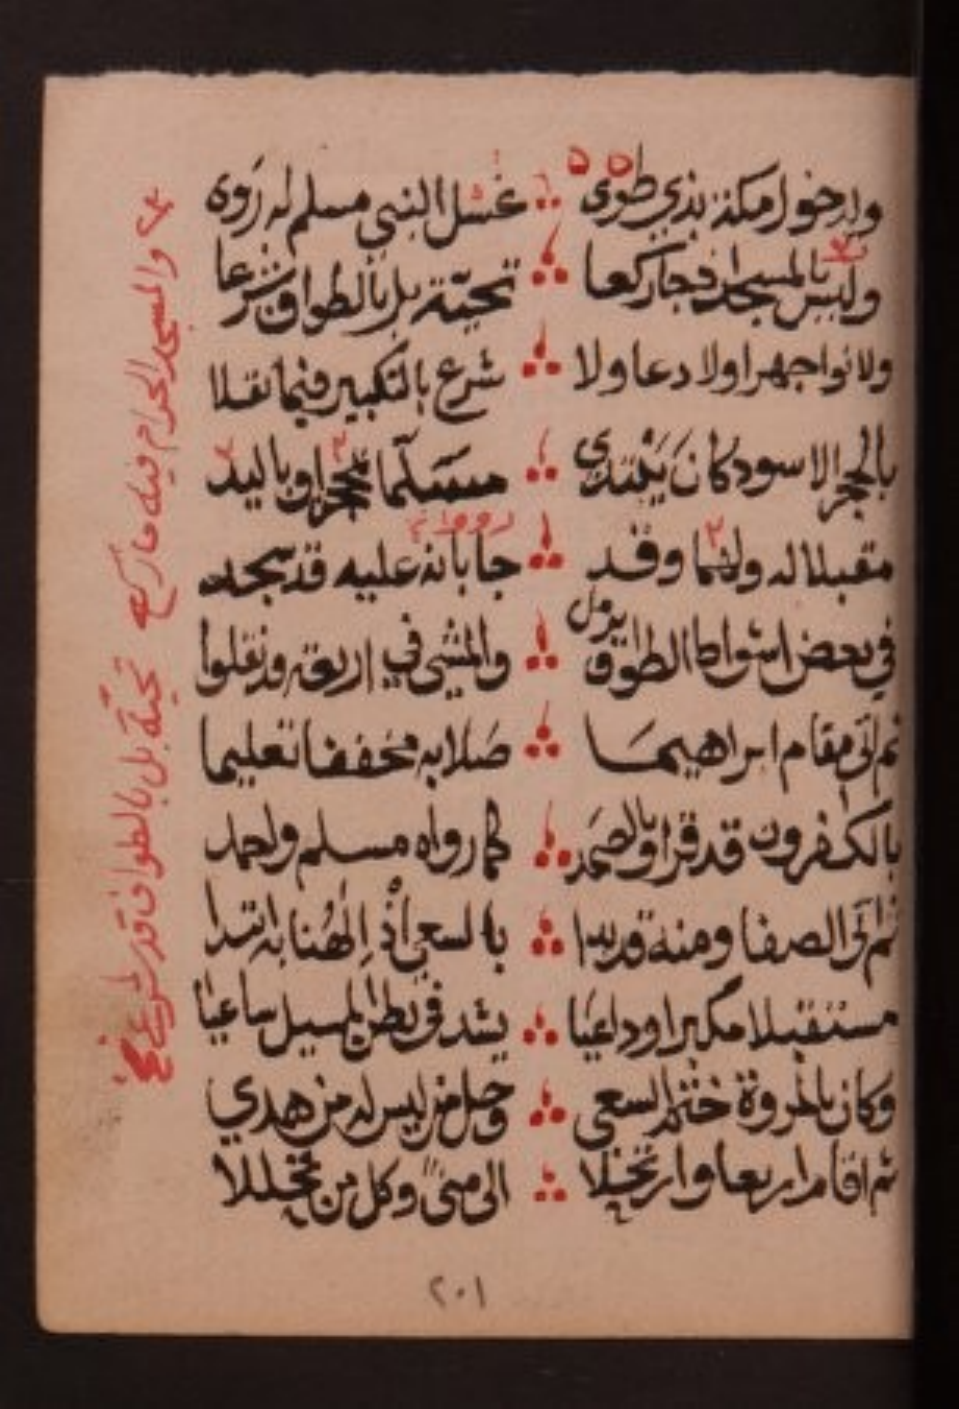 ولدخول مكة بذي طوى غسل النبي مسلم له روه
وليس بالمسجد جا ركعا تحية بل بالطواف شرعا
ولا نوا جهرا ولا دعا ولا شرع بالتكبير فيما نقلا
بالحجر الاسود كان يبتدي مستلما بمحجن او باليد
مقبلا له ولثما وقد جا بانه عليه قد سجد
في بعض اشواط الطواف يرمل والمشي في اربعة قد نقلوا
ثم اتى مقام ابراهيما صلا به مخففا تعليما
بالكفرون قد قرا وبالصمد كما رواه مسلم واحمد
ثم اتى الصفا ومنه قد بدا بالسعي اذ الهنا به ابتدا
مستقبلا مكبرا وداعيا يشد في بطن المسيل ساعيا
وكان بالمروة ختم السعي وحل من ليس له من هدي
ثم اقام اربعا وارتحلا الى منى وكل من تحللا
والمسجد الحرام فيه ما ركع
تحية بل بالطواف قد شرع
٢٠١